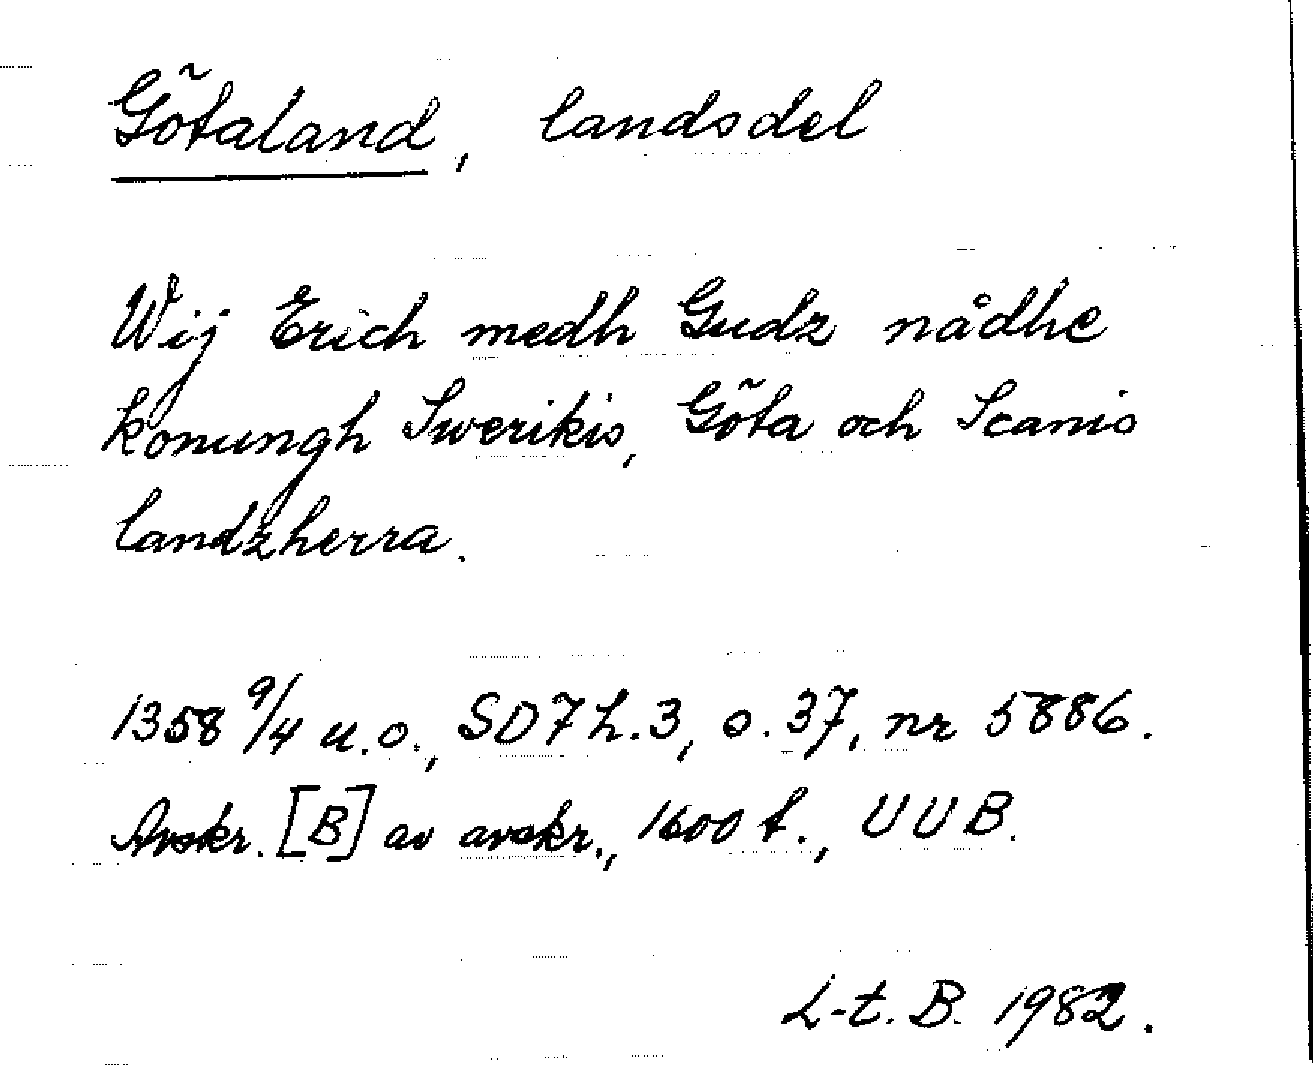 Götaland, landsdel
Wij Erich medh Gudz nådhe
konungh Swerikis, Göta och Scanis
landzherra.
1358 9/4 u.o., SD7 h.3, s.37, nr 5886.
Avskr. [B] av avskr., 1600 t., UUB.
L-t. B. 1982.